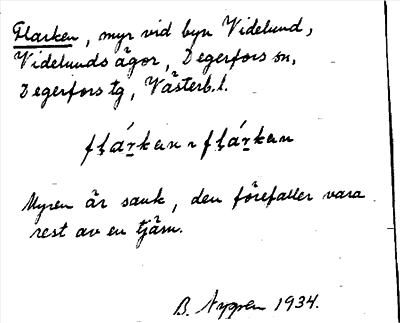 Flarken, myr vid byn Videlund,
Videlunds ägor, Degerfors sn,
Degerfors tg, Västerb. l.
fḷárkɛn ~ fḷárkɛn
Myren är sank, den förefaller vara
rest av en tjärn.
B. Nygren 1934.